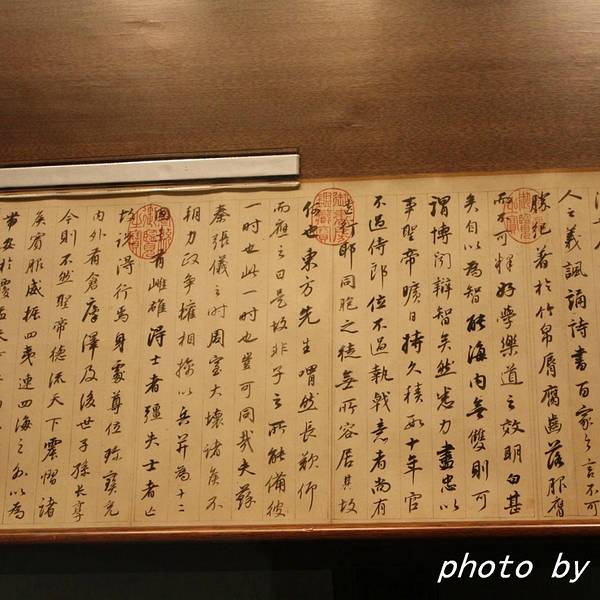 人之義諷誦詩書百家之言不可
勝紀著於竹帛脣腐齒落服膺
而不可釋好學樂道之效明白甚
矣自以為智能海內無雙則可
謂博聞辯智矣然悉力盡忠以
事聖帝曠日持久積數十年官
不過侍郎位不過執戟意者尚有
遺行耶同胞之徒無所容居其故
何也東方先生喟然長歎仰
而應之曰是故非子之所能備彼
一時也此一時也豈可同哉夫蘇
秦張儀之時周室大壞諸侯不
朝力政爭權相擒以兵并為十二
國未有雌雄得士者彊失士者亡
故說得行焉身處尊位珍寶充
內外有倉廩澤及後世子孫長享
今則不然聖帝德流天下震慴諸
侯賓服威振四夷連四海之外以為
帶安於覆
photo by